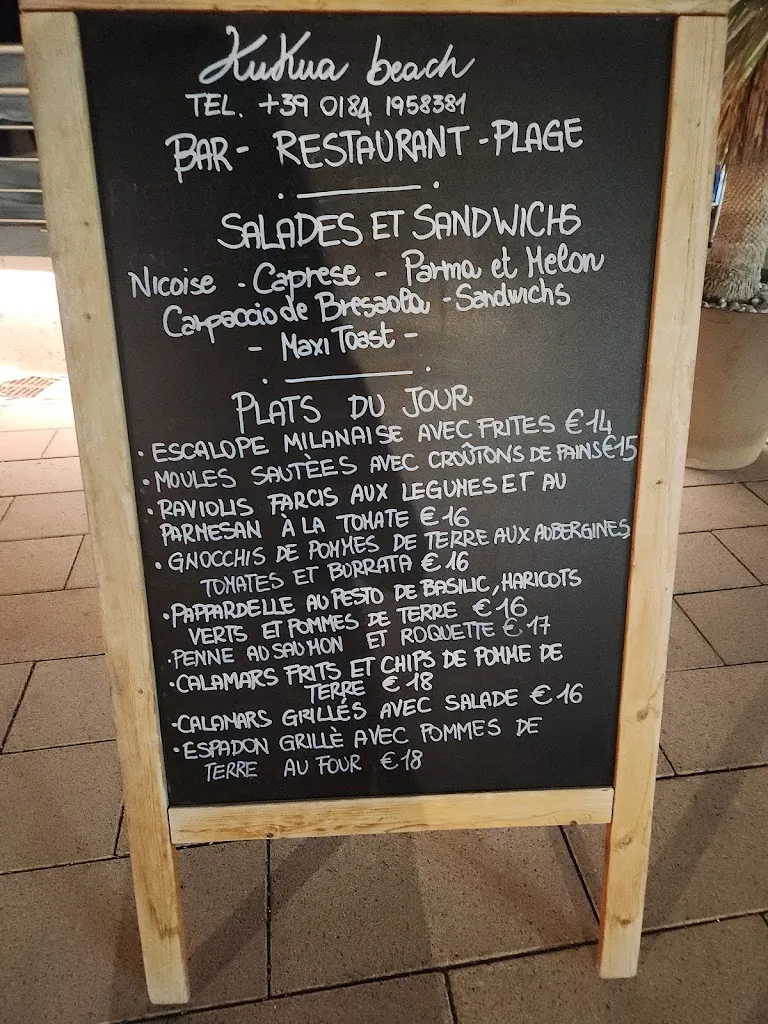 KuKua beach
TEL. +39 0184 1958381
BAR - RESTAURANT - PLAGE
SALADES ET SANDWICHS
Nicoise - Caprese - Parma et Melon
Carpaccio de Bresaola - Sandwichs
- Maxi Toast -
PLATS DU JOUR
• ESCALOPE MILANAISE AVEC FRITES €14
• MOULES SAUTÈES AVEC CROÛTONS DE PAINS €15
• RAVIOLIS FARCIS AUX LEGUMES ET AU
PARMESAN À LA TOMATE €16
• GNOCCHIS DE POMMES DE TERRE AUX AUBERGINES
TOMATES ET BURRATA €16
• PAPPARDELLE AU PESTO DE BASILIC, HARICOTS
VERTS ET POMMES DE TERRE €16
• PENNE AU SAUMON ET ROQUETTE €17
• CALAMARS FRITS ET CHIPS DE POMME DE
TERRE €18
• CALAMARS GRILLÉS AVEC SALADE €16
• ESPADON GRILLÈ AVEC POMMES DE
TERRE AU FOUR €18